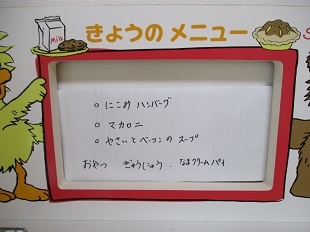 Milk
きょうの メニュー
○ にこみ ハンバーグ
○ マカロニ
○ やさいとベーコンの スープ
おやつ ぎゅうにゅう . なまクリームパイ